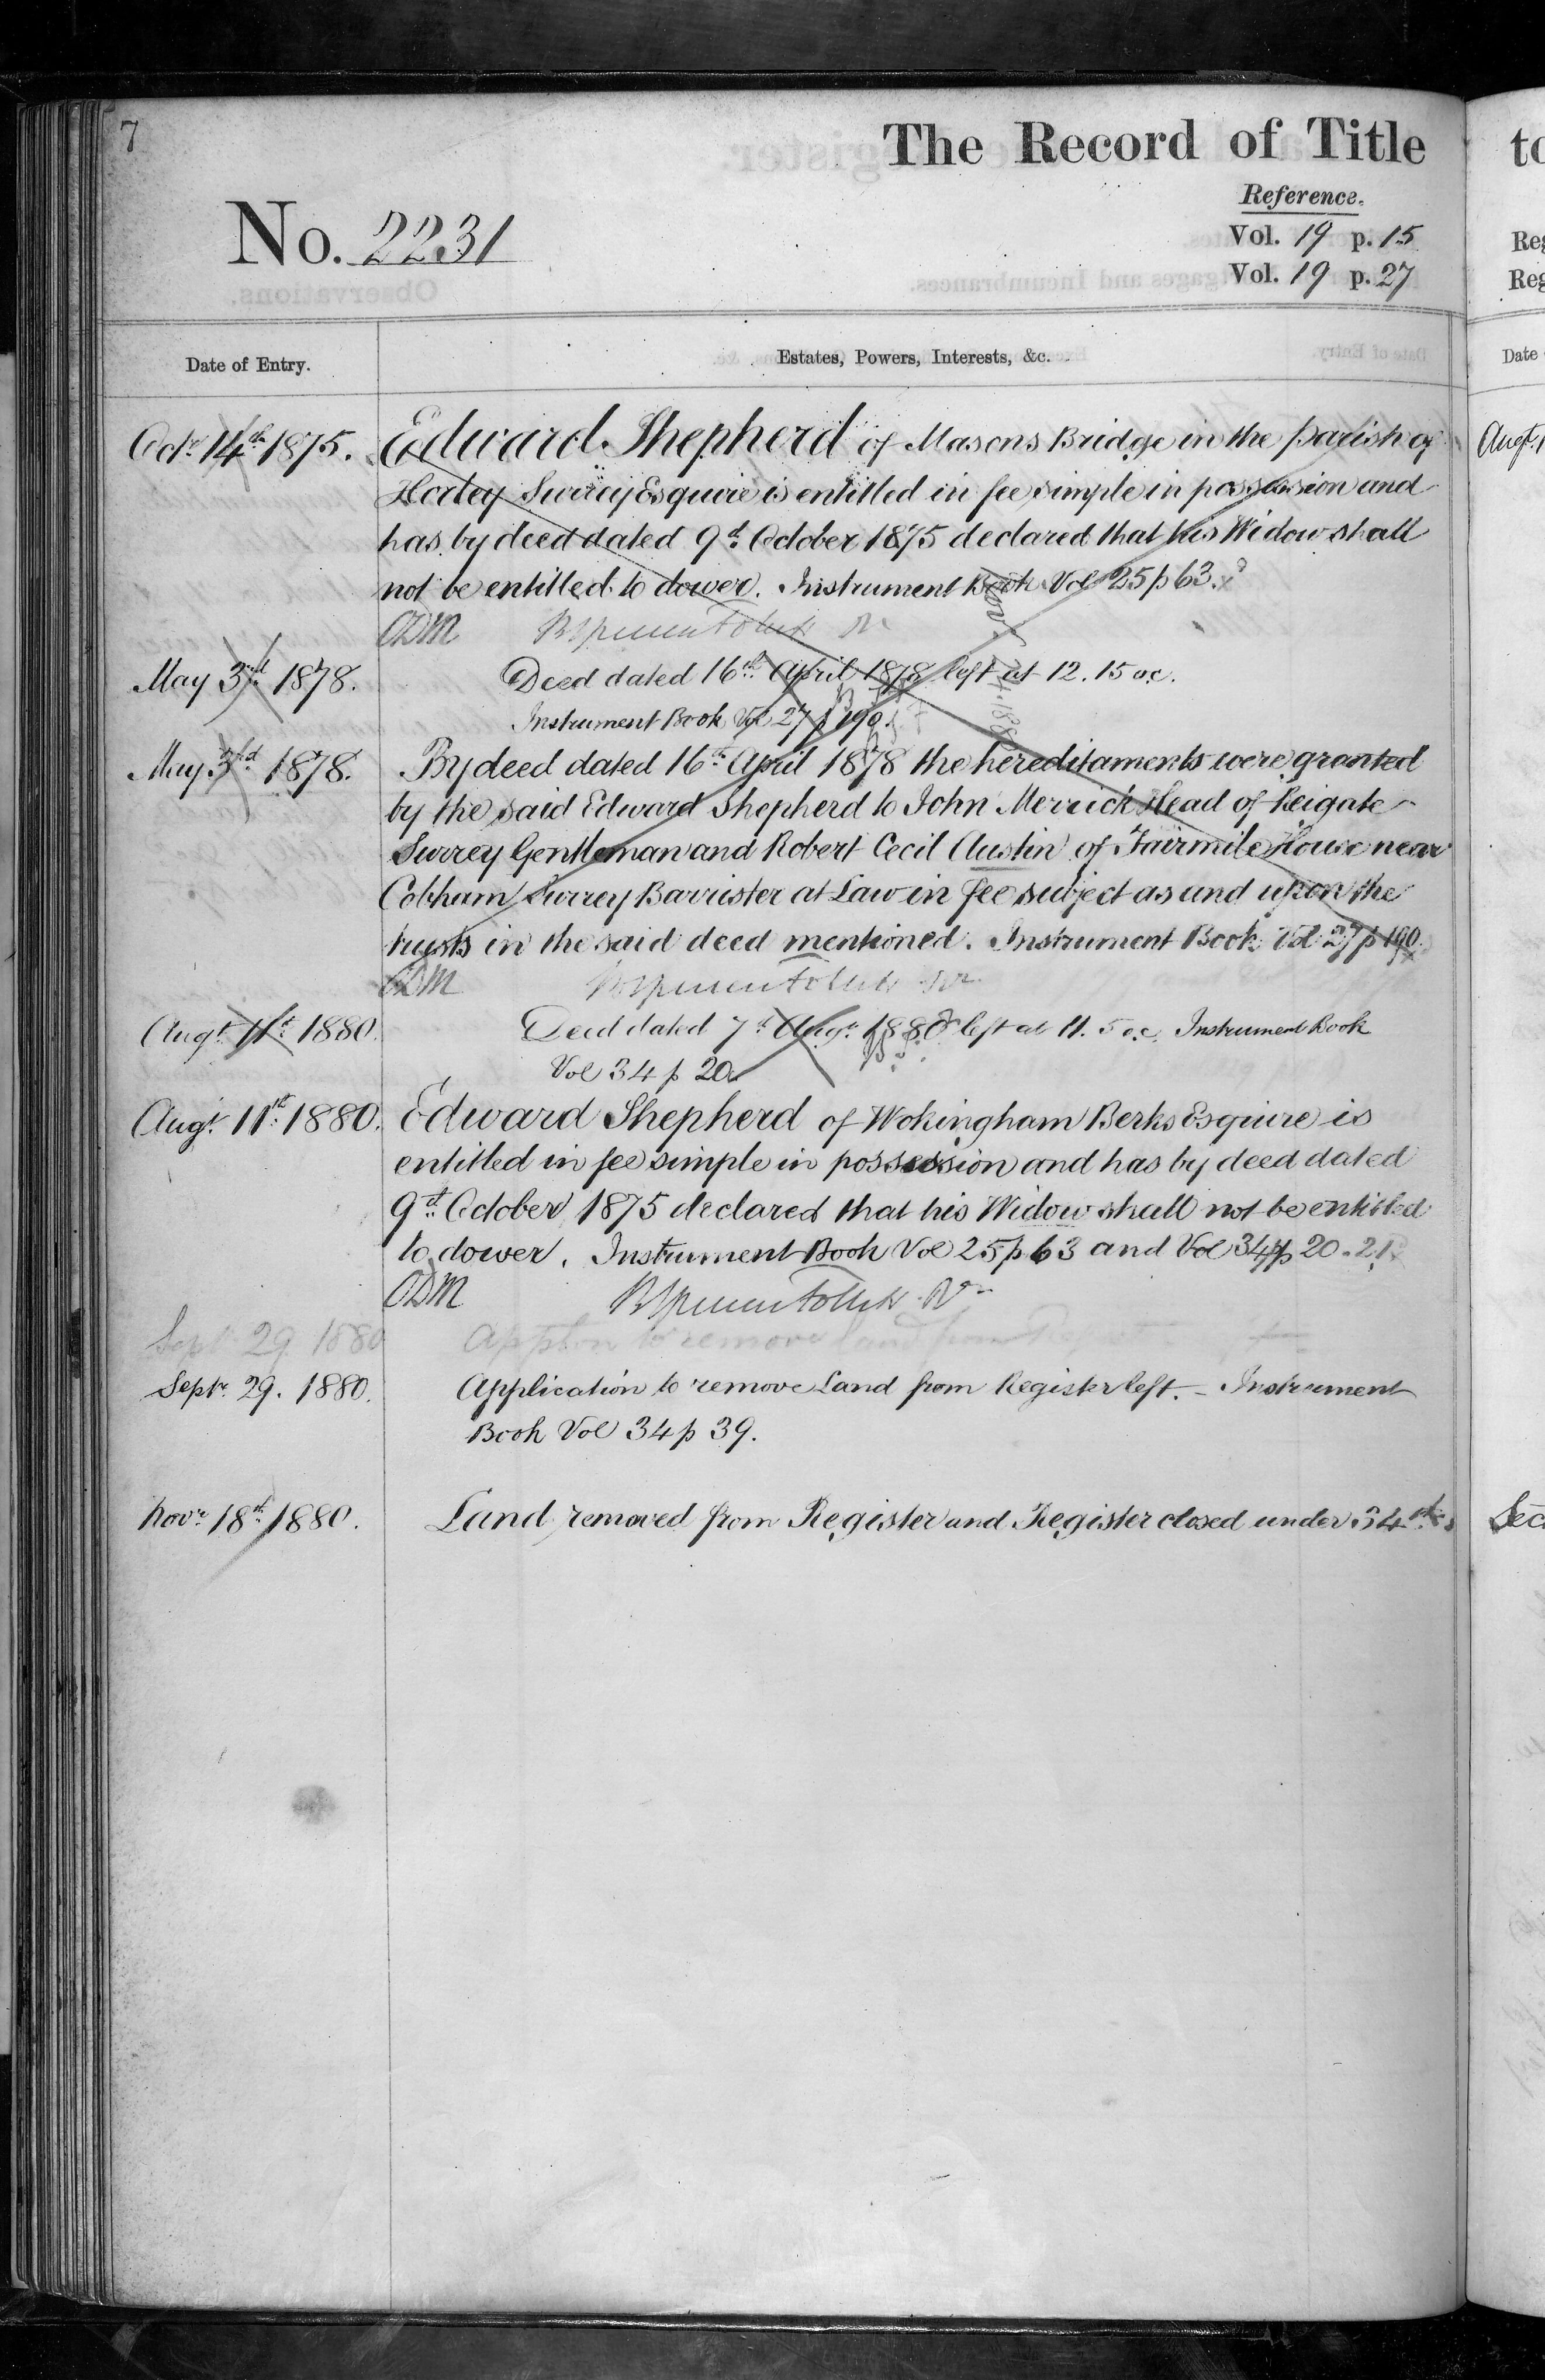 7
The Record of Title
Reference.
No. 2231
Vol. 19 p. 15
Vol. 19 p. 27
Date of Entry.
Estates, Powers, Interests, &c.
Octr. 14th 1875. Edward Shepherd of Masons Bridge in the parish of
Horley Surrey Esquire is entitled in fee simple in possession and
has by deed dated 9th October 1875 declared that his Widow shall
not be entitled to dower. Instrument Book Vol 25 p 63.
May 3rd 1878. Deed dated 16th April 1878 left at 12.15 oc.
Instrument Book Vol 27 p 190.
May 3rd 1878. By deed dated 16th April 1878 the hereditaments were granted
by the said Edward Shepherd to John Merrick Head of Reigate
Surrey Gentleman and Robert Cecil Austin of Fairmile House near
Cobham Surrey Barrister at Law in fee subject as and upon the
trusts in the said deed mentioned. Instrument Book Vol 27 p 190.
Augt. 11th 1880. Deed dated 7th Augt. 1880 left at 11.5 o.c. Instrument Book
Vol 34 p 20.
Augt. 11th 1880. Edward Shepherd of Wokingham Berks Esquire is
entitled in fee simple in possession and has by deed dated
9th October 1875 declared that his Widow shall not be entitled
to dower. Instrument Book Vol 25 p 63 and Vol 34 p 20.21
Sept 29 1880 Appltion to remove land from
Septr. 29. 1880. Application to remove Land from Register left. – Instrument
Book Vol 34 p 39.
Novr. 18th 1880. Land removed from Register and Register closed under 34th
to
Reg
Reg
Date
Augt. 1
Sec